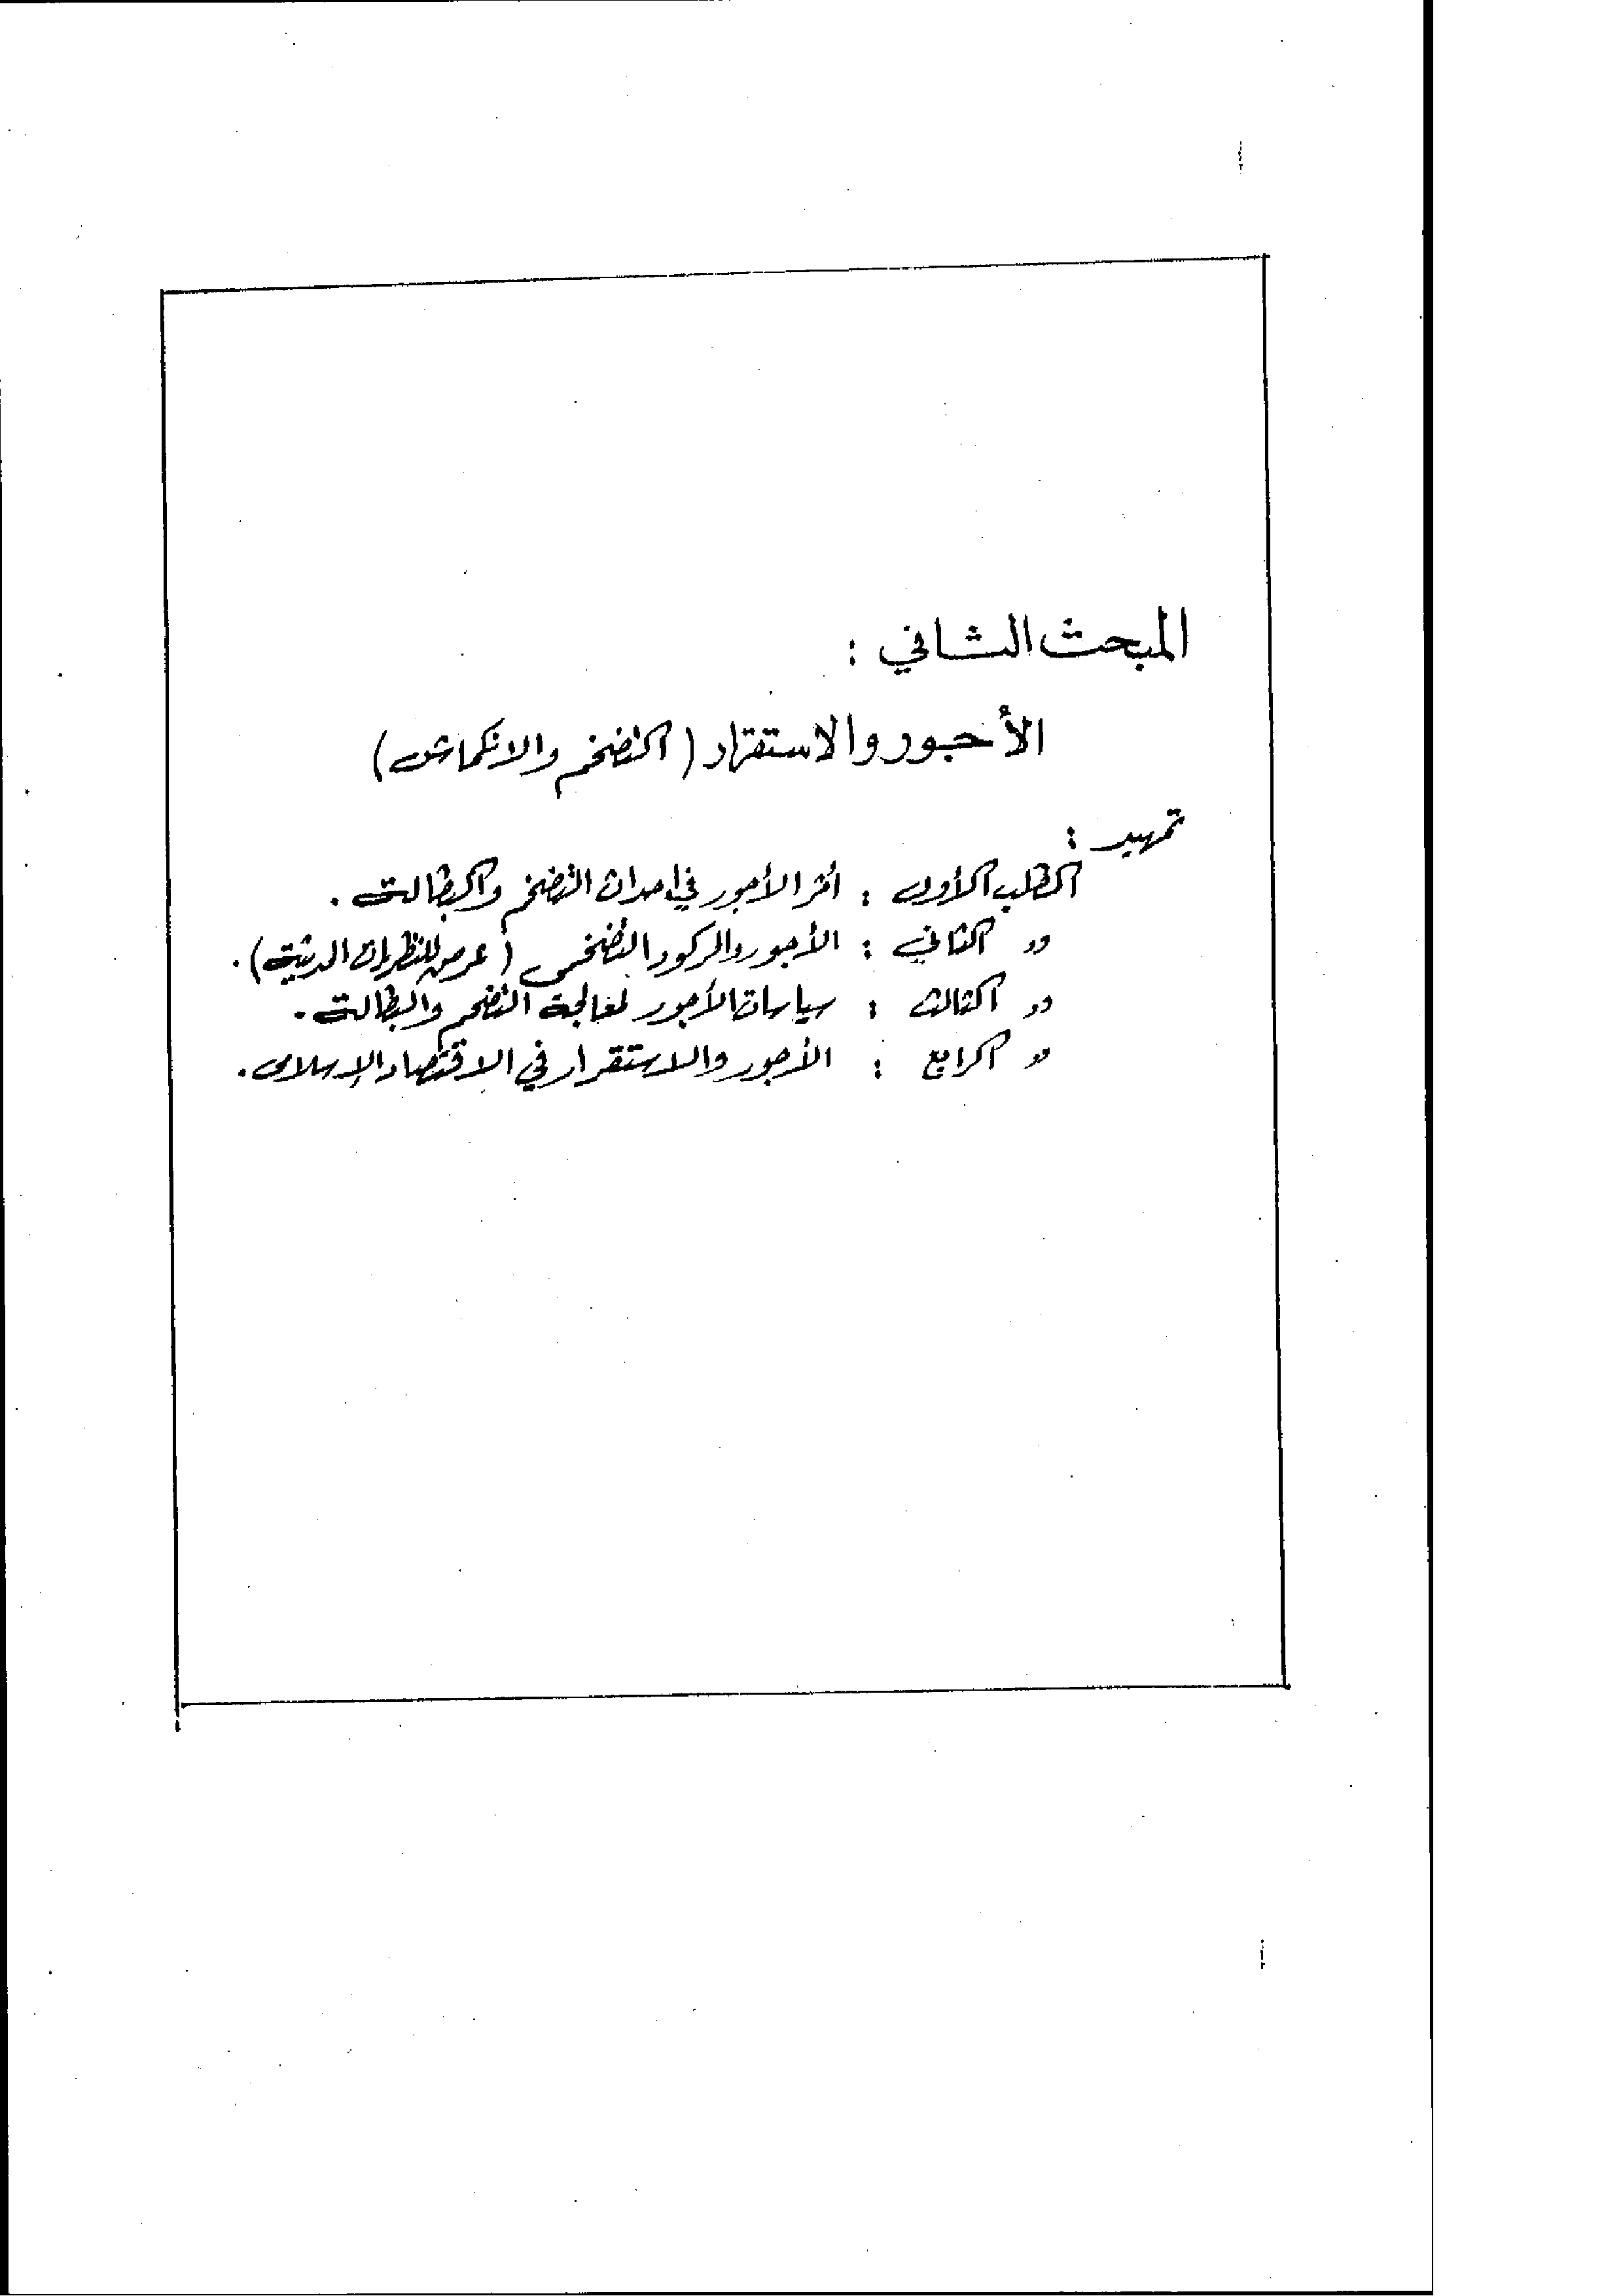 المبحث الثاني :
الأجور والاستقرار (التضخم والانكماش)
تمهيد :
المطلب الأول : أثر الأجور في احداث التضخم والبطالة .
" الثاني : الأجور والركود التضخمى (عرض للنظريات الحديثة) .
" الثالث : سياسات الأجور لمعالجة التضخم والبطالة .
" الرابع : الأجور والاستقرار في الاقتصاد الإسلامى .